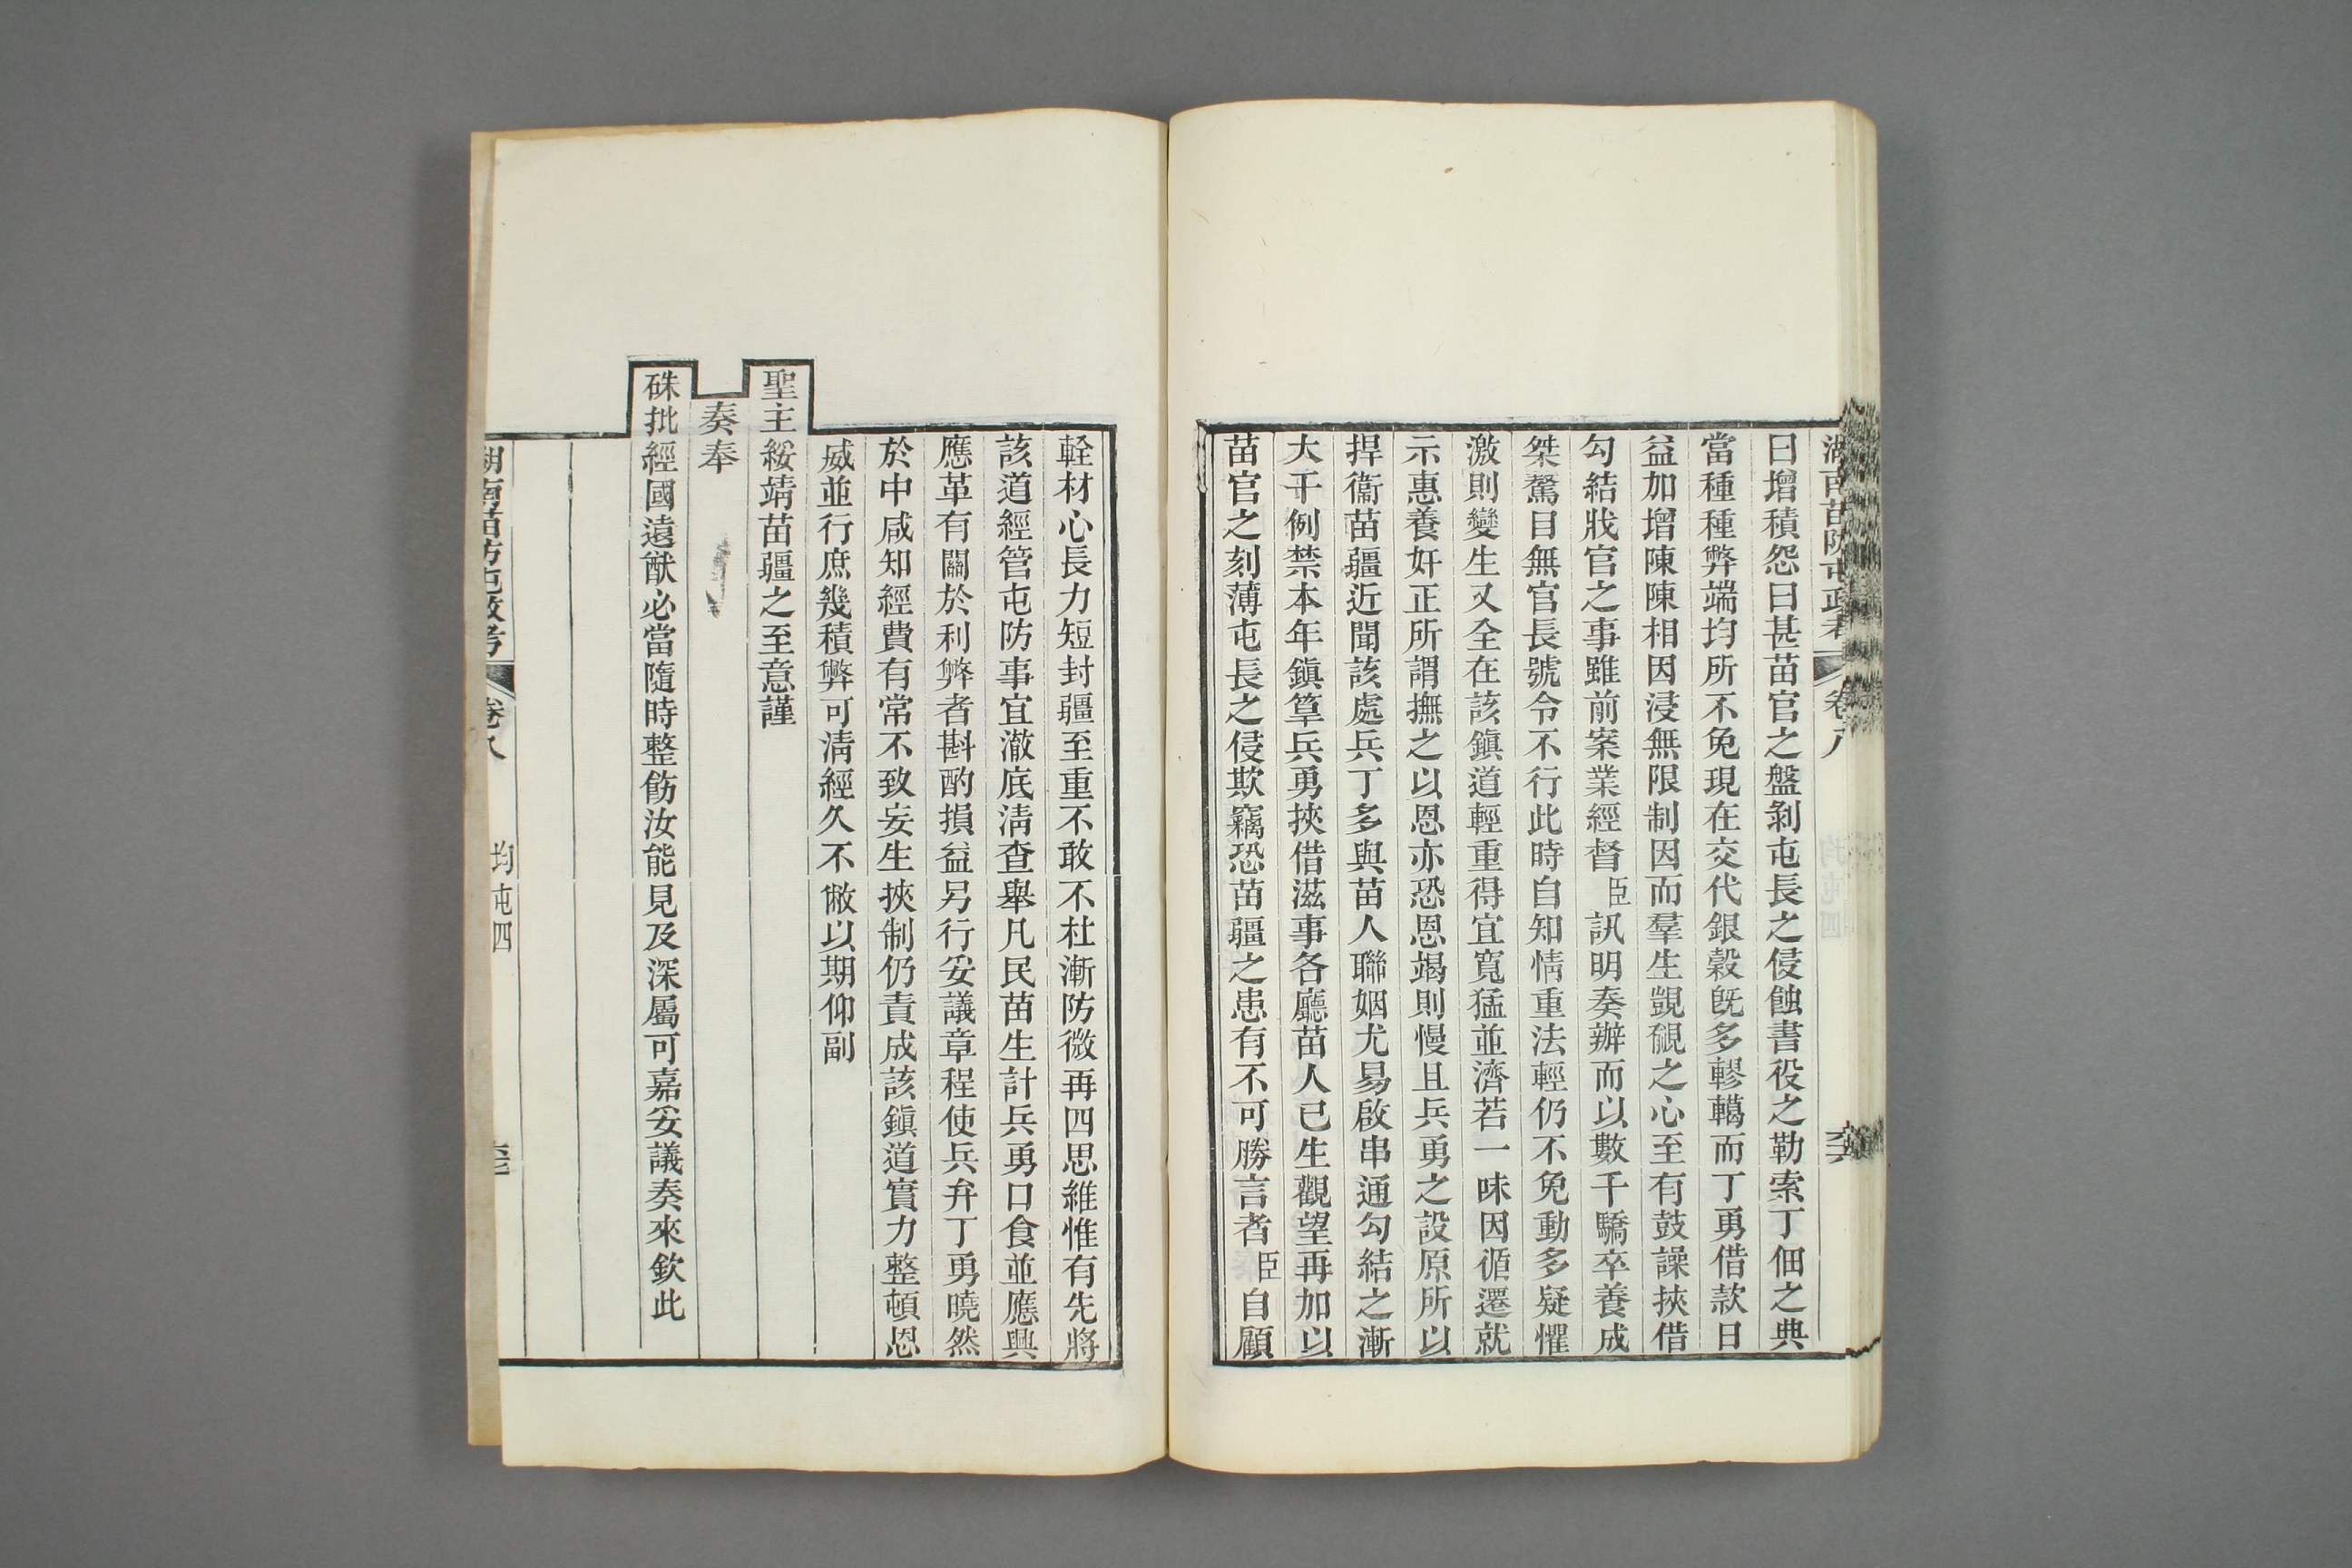 湖南苗防屯政考 卷八
日增積怨日甚苗官之盤剝屯長之侵蝕書役之勒索丁佃之典
當種種弊端均所不免現在交代銀穀旣多轇轕而丁勇借款日
益加增陳陳相因浸無限制因而羣生覬覦之心至有鼓譟挾借
勾結戕官之事雖前案業經督臣訊明奏辦而以數千驕卒養成
桀驁目無官長號令不行此時自知情重法輕仍不免動多疑懼
激則變生又全在該鎭道輕重得宜寬猛並濟若一味因循遷就
示惠養奸正所謂撫之以恩亦恐恩竭則慢且兵勇之設原所以
捍衞苗疆近聞該處兵丁多與苗人聯姻尤易啟串通勾結之漸
大干例禁本年鎭筸兵勇挾借滋事各廳苗人已生觀望再加以
苗官之刻薄屯長之侵欺竊恐苗疆之患有不可勝言者臣自顧
輇材心長力短封疆至重不敢不杜漸防微再四思維惟有先將
該道經管屯防事宜澈底淸查舉凡民苗生計兵勇口食並應興
應革有關於利弊者斟酌損益另行妥議章程使兵弁丁勇曉然
於中咸知經費有常不致妄生挾制仍責成該鎭道實力整頓恩
威並行庶幾積弊可淸經久不敝以期仰副
聖主綏靖苗疆之至意謹
奏奉
硃批經國遠猷必當隨時整飭汝能見及深屬可嘉妥議奏來欽此
湖南苗防屯政考 卷八 均屯四